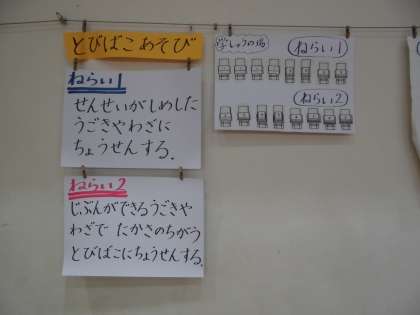 とびばこあそび
ねらい1
せんせいがしめした
うごきやわざに
ちょうせんする.
ねらい2
じぶんができるうごきや
わざで たかさのちがう
とびばこにちょうせんする.
学しゅうの場
ねらい1
ねらい2